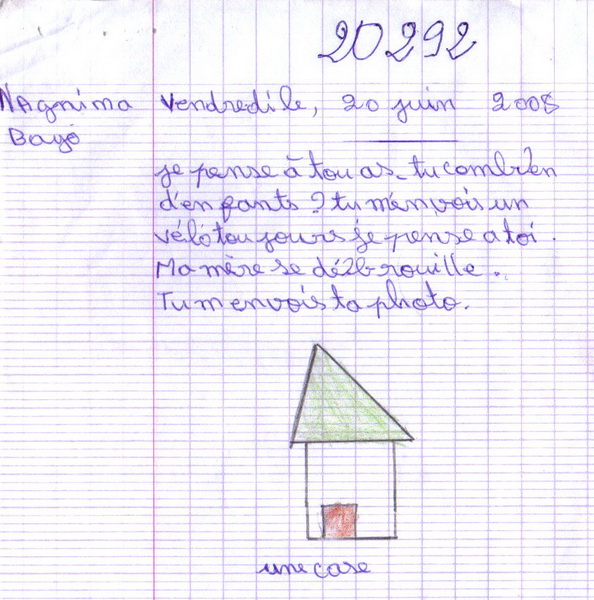 20292
NAgnima Vendredile, 20 juin 2008
Bayo
je pense à tou as-tu combien
d'enfants ? tu m'envois un
vélo toujours je pense a toi.
Ma mère se dé2brouille.
Tu m envois ta photo.
une case